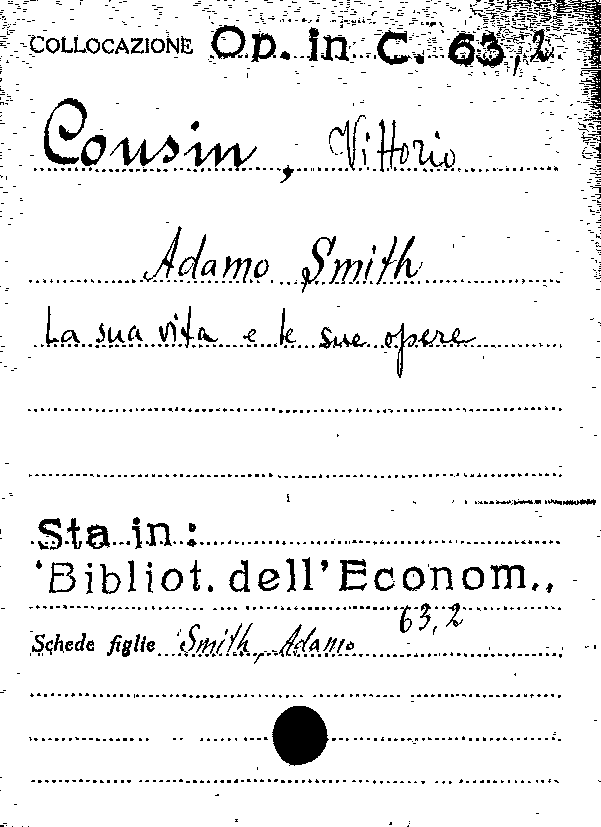 COLLOCAZIONE Op. in C. 63,2
Cousin, Vittorio
Adamo Smith
La sua vita e le sue opere
Sta in:
'Bibliot. dell'Econom.,
63,2
Schede figlie Smith, Adamo